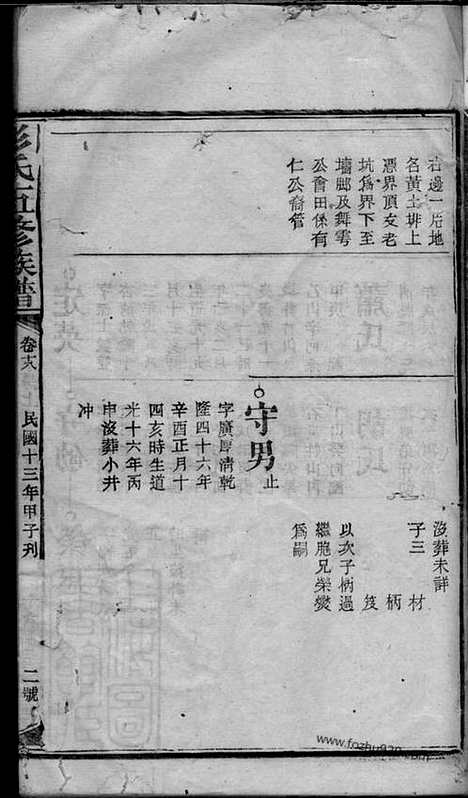 右邊一片地
名黃土排上
憑界頂支老
坑爲界下至
墻腳及舞雩
公會田保有
仁公裔管
沒葬未詳
子三 材
柄
笈
以次子柄過
繼胞兄榮爕
爲嗣
守男止
字廣厚清乾
隆四十六年
辛酉正月十
四亥時生道
光十六年丙
申沒葬小井
冲
彭氏五修族譜
民國十三年甲子刊
二號
www.fozhu920.com